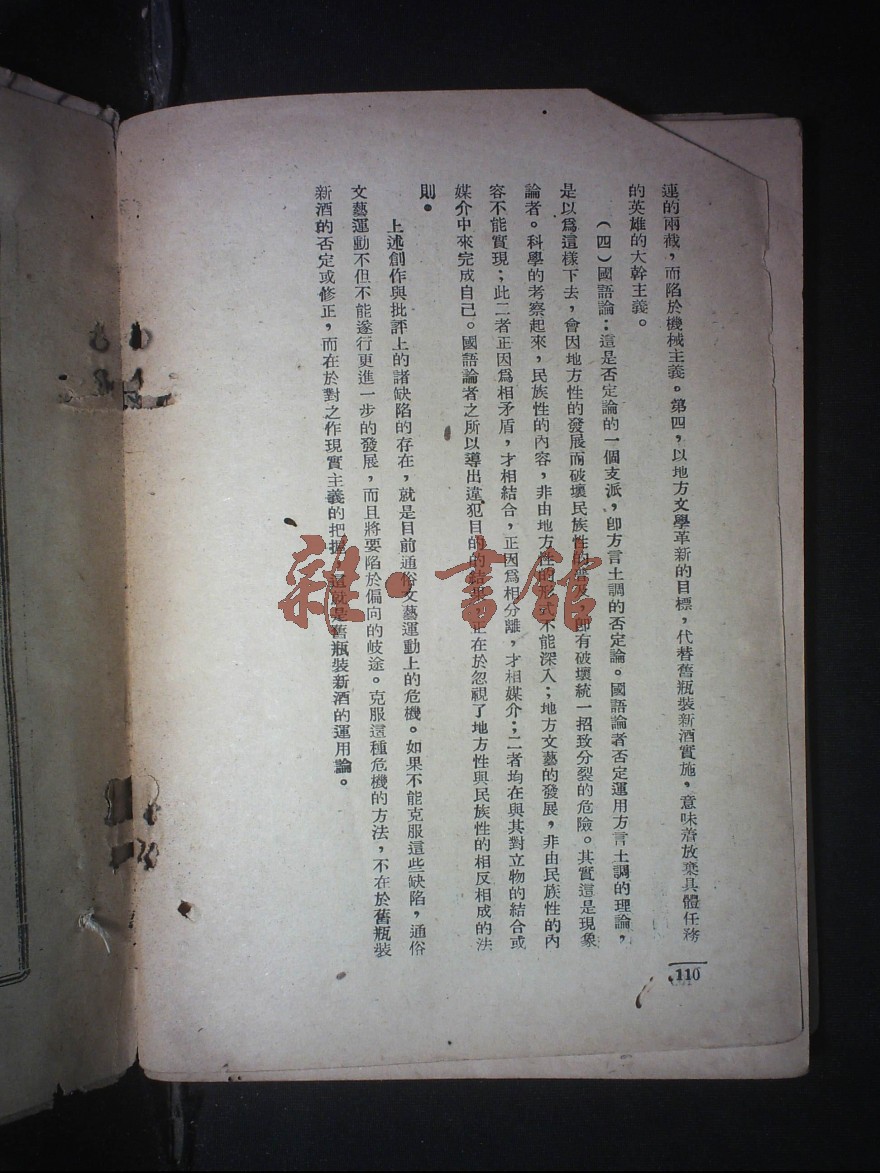 連的兩截,而陷於機械主義。第四,以地方文學革新的目標,代替舊瓶裝新酒實施,意味着放棄具體任務
的英雄的大幹主義。
(四)國語論:這是否定論的一個支派,卽方言土調的否定論。國語論者否定運用方言土調的理論,
是以爲這樣下去,會因地方性的發展而破壞民族性的普及,卽有破壞統一招致分裂的危險。其實這是現象
論者。科學的考察起來,民族性的內容,非由地方性的形式不能深入;地方文藝的發展,非由民族性的內
容不能實現;此二者正因爲相矛盾,才相結合,正因爲相分離,才相媒介;二者均在與其對立物的結合或
媒介中來完成自己。國語論者之所以導出違犯目的的結果,正在於忽視了地方性與民族性的相反相成的法
則。
上述創作與批評上的諸缺陷的存在,就是目前通俗文藝運動上的危機。如果不能克服這些缺陷,通俗
文藝運動不但不能遂行更進一步的發展,而且將要陷於偏向的歧途。克服這種危機的方法,不在於舊瓶裝
新酒的否定或修正,而在於對之作現實主義的把握,這就是舊瓶裝新酒的運用論。
110
雜·書館